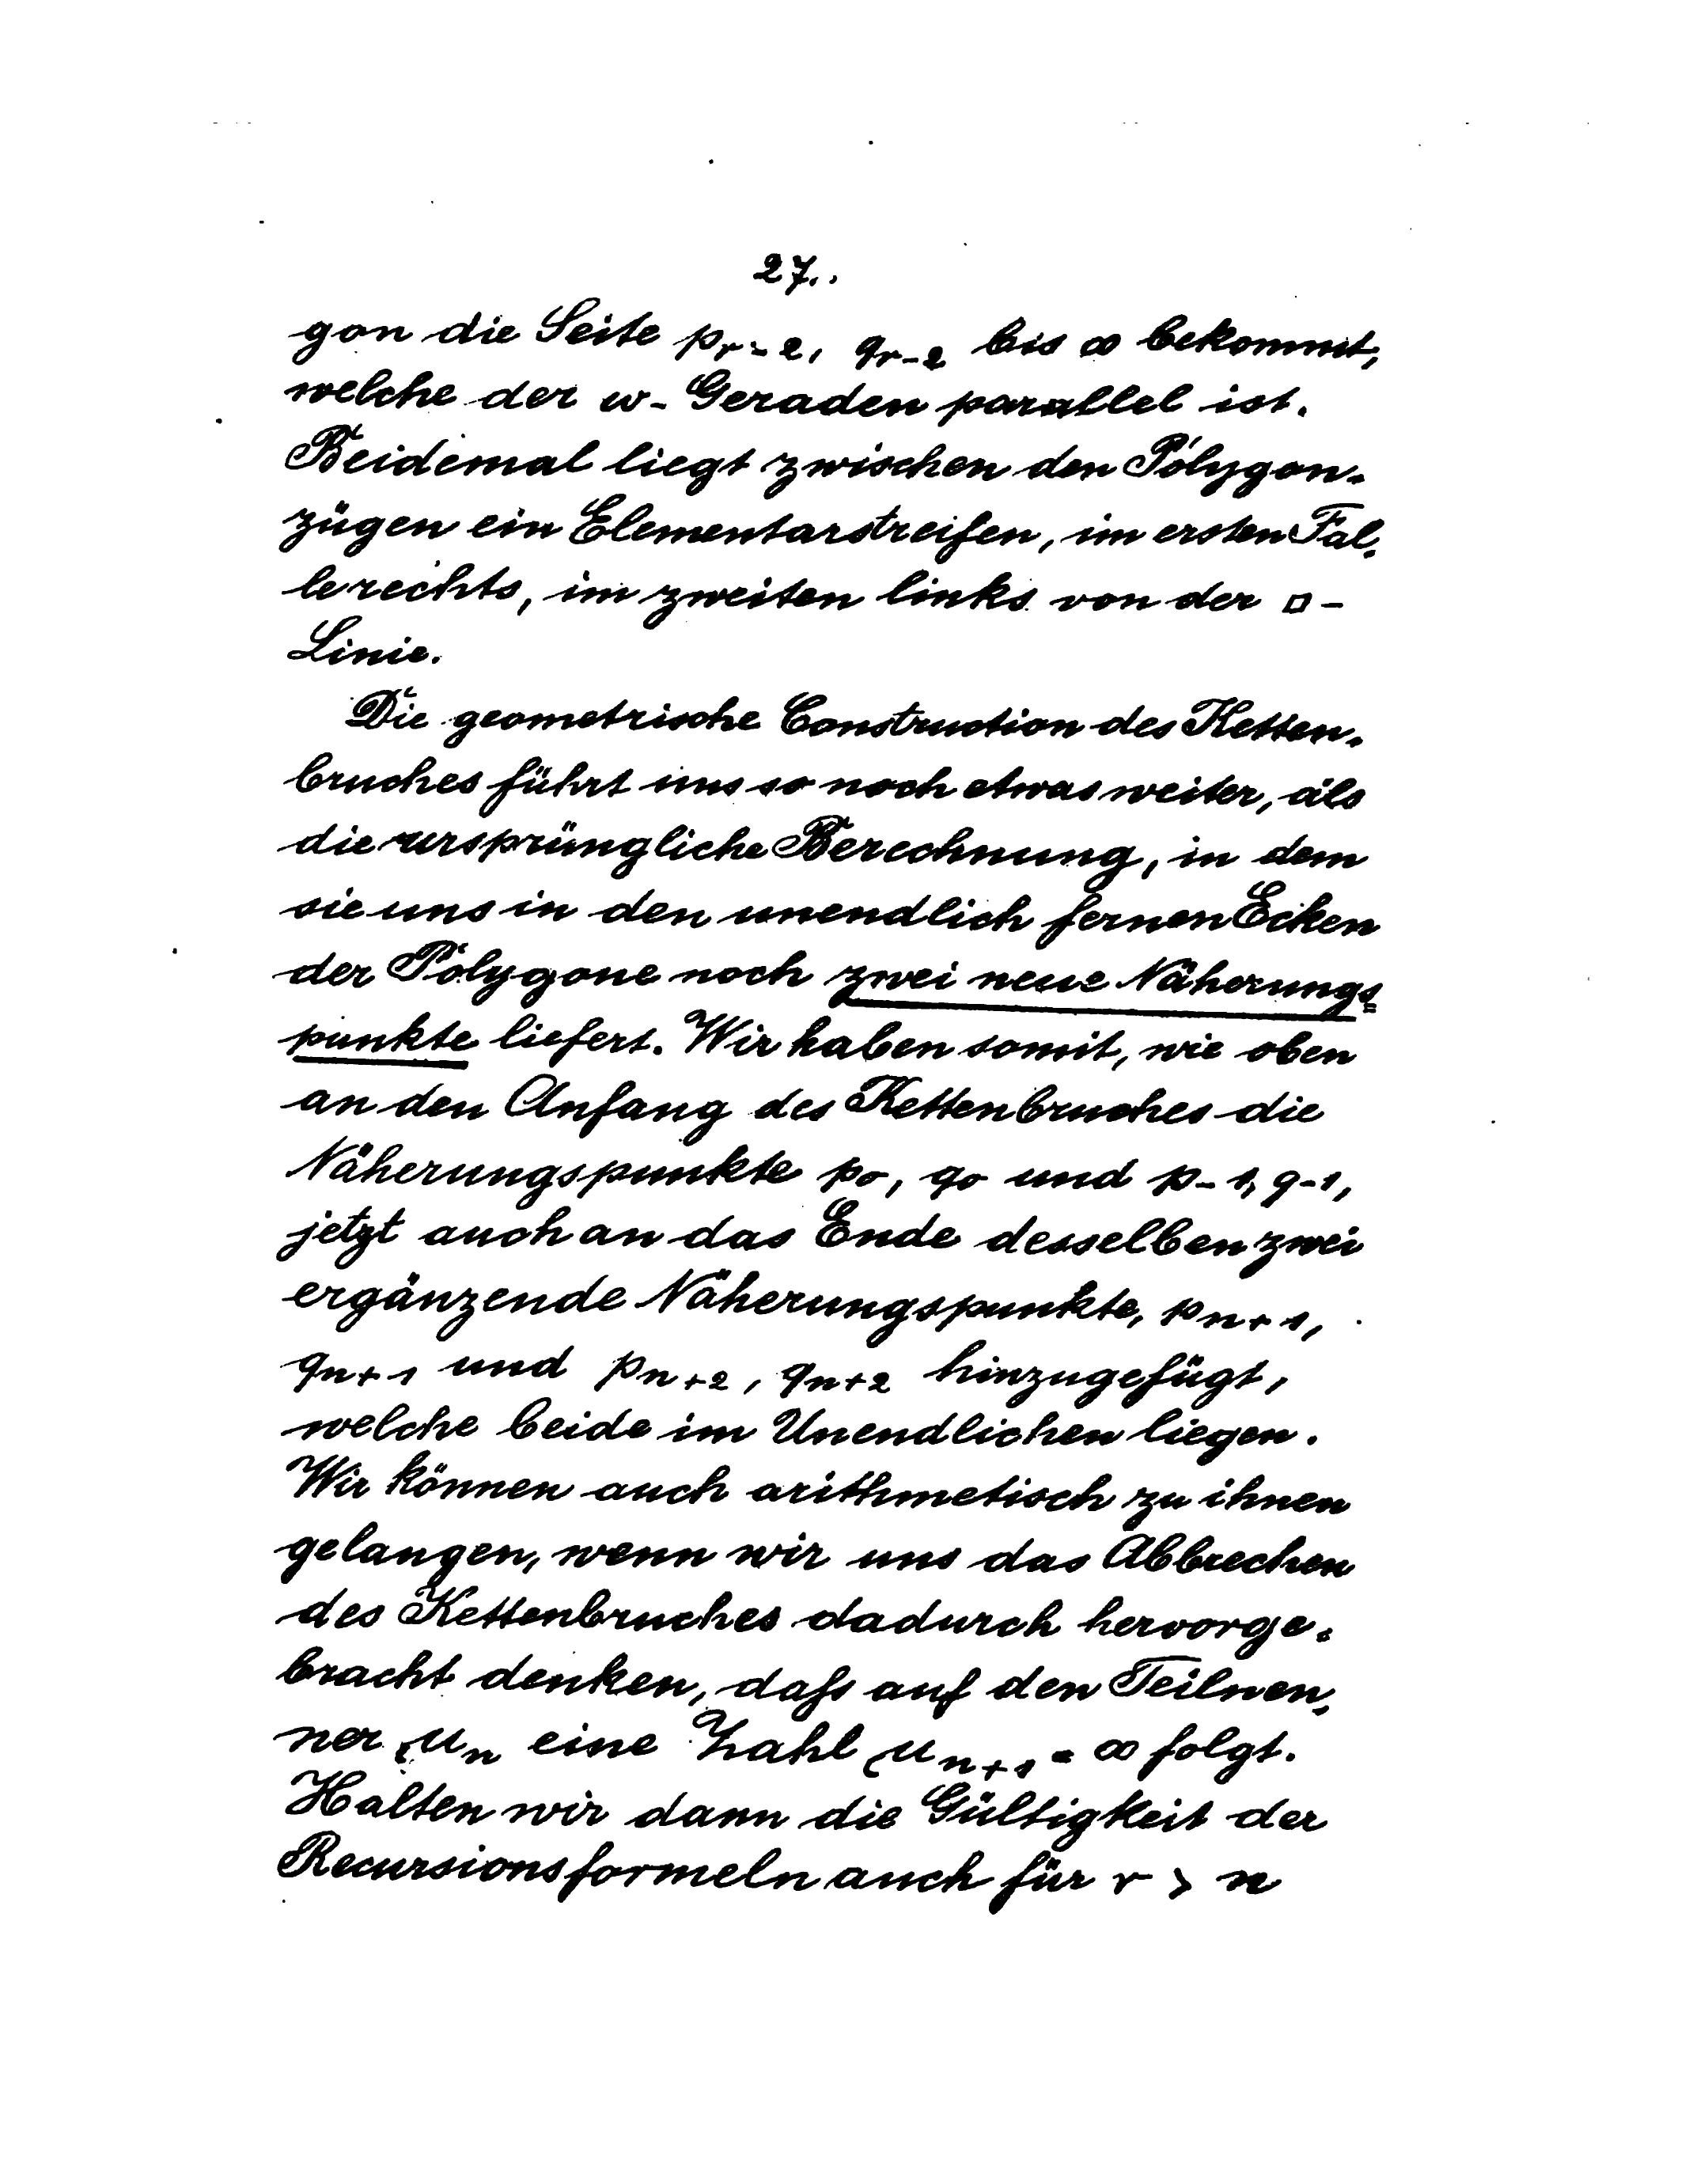 27.
gon die Seite pᵣ₋₂, qᵣ₋₂ bis ∞ bekommt,
welche der w-Geraden parallel ist.
Beidemal liegt zwischen den Polygon-
zügen ein Elementarstreifen, im ersten Fal-
le rechts, im zweiten links von der □-
Linie.
Die geometrische Construction des Ketten-
bruches führt uns so noch etwas weiter, als
die ursprüngliche Berechnung, in dem
sie uns in den unendlich fernen Ecken
der Polygone noch zwei neue Näherungs-
punkte liefert. Wir haben somit, wie oben
an den Anfang des Kettenbruches die
Näherungspunkte p₀, q₀ und p₋₁, q₋₁,
jetzt auch an das Ende desselben zwei
ergänzende Näherungspunkte, pₙ₊₁,
qₙ₊₁ und pₙ₊₂, qₙ₊₂ hinzugefügt,
welche beide im Unendlichen liegen.
Wir können auch arithmetisch zu ihnen
gelangen, wenn wir uns das Abbrechen
des Kettenbruches dadurch hervorge-
bracht denken, daſs auf den Teilnen-
ner μₙ eine Zahl μₙ₊₁ = ∞ folgt.
Halten wir dann die Gültigkeit der
Recursionsformeln auch für r > n